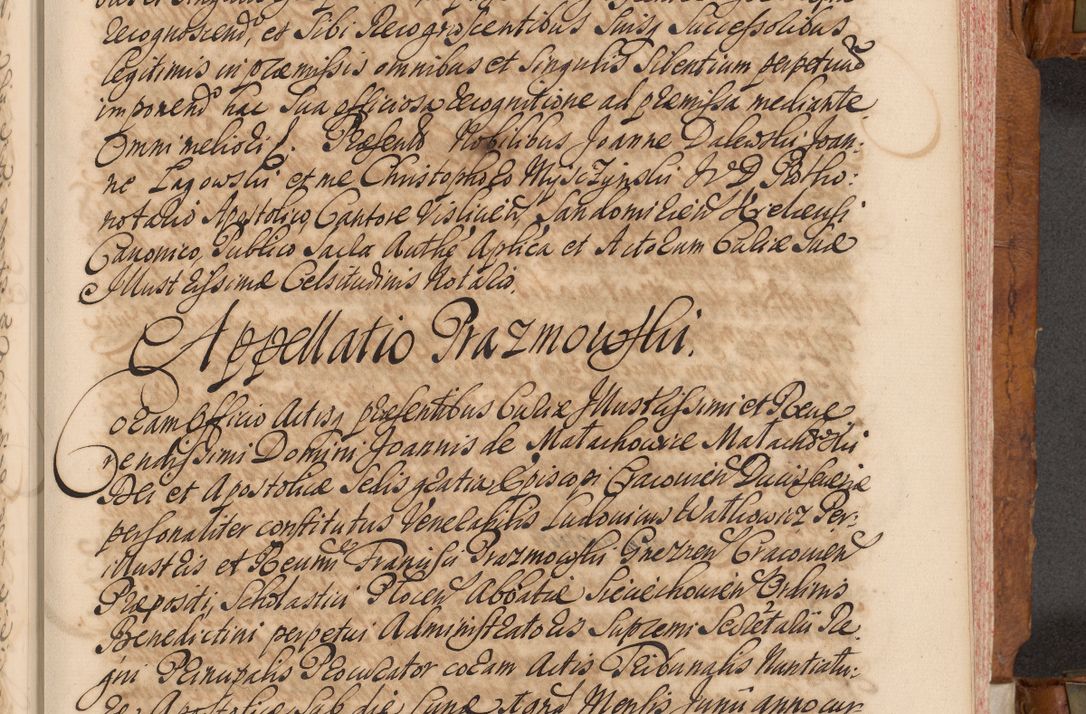 recognoscend, et Sibi Recognoscentibus Suisq Successoribus
legitimis in praemissis omnibus et Singulis Silentium perpetuũ
imponend hac Sua officiosa recognitione ad praemissa mediante
Omni meliori f. Praesentb Nobilibus Joanne Dalewski Joan:
ne Lagowski et me Christophoro Mysczynski J.V.D. Protho:
notario Apostolico, Cantore Vislicien Sandomirien Kielcensi
Canonico, Publico Sacra Authe Aplica et Actorum Curiae Suae
Illustrissimae Celsitudinis Notario.
Appellatio Prazmowski.
Coram Officio Actisq praesentibus Curiae Illustrissimi et Reve
rendissimi Domini Joannis de Małachowice Małachowski
Dei et Apostolicae Sedis gratia Episcopi Cracovien Ducis Severiae
personaliter constitutus Venerabilis Ludovicus Watkowicz Per:
illustris et Reverndi Francisci Prazmowski Gneznen Cracovien
Praepositi, Scholastici Plocen Abbatiae Sieciechovien Ordinis
Benedictini perpetui Administratoris Supremi Secretarii Re.
gni Principalis Procurator coram Actis Tribunalis Nuntiatu:
re Apostolicae Sub die Lunae Mensis Junii anno cur